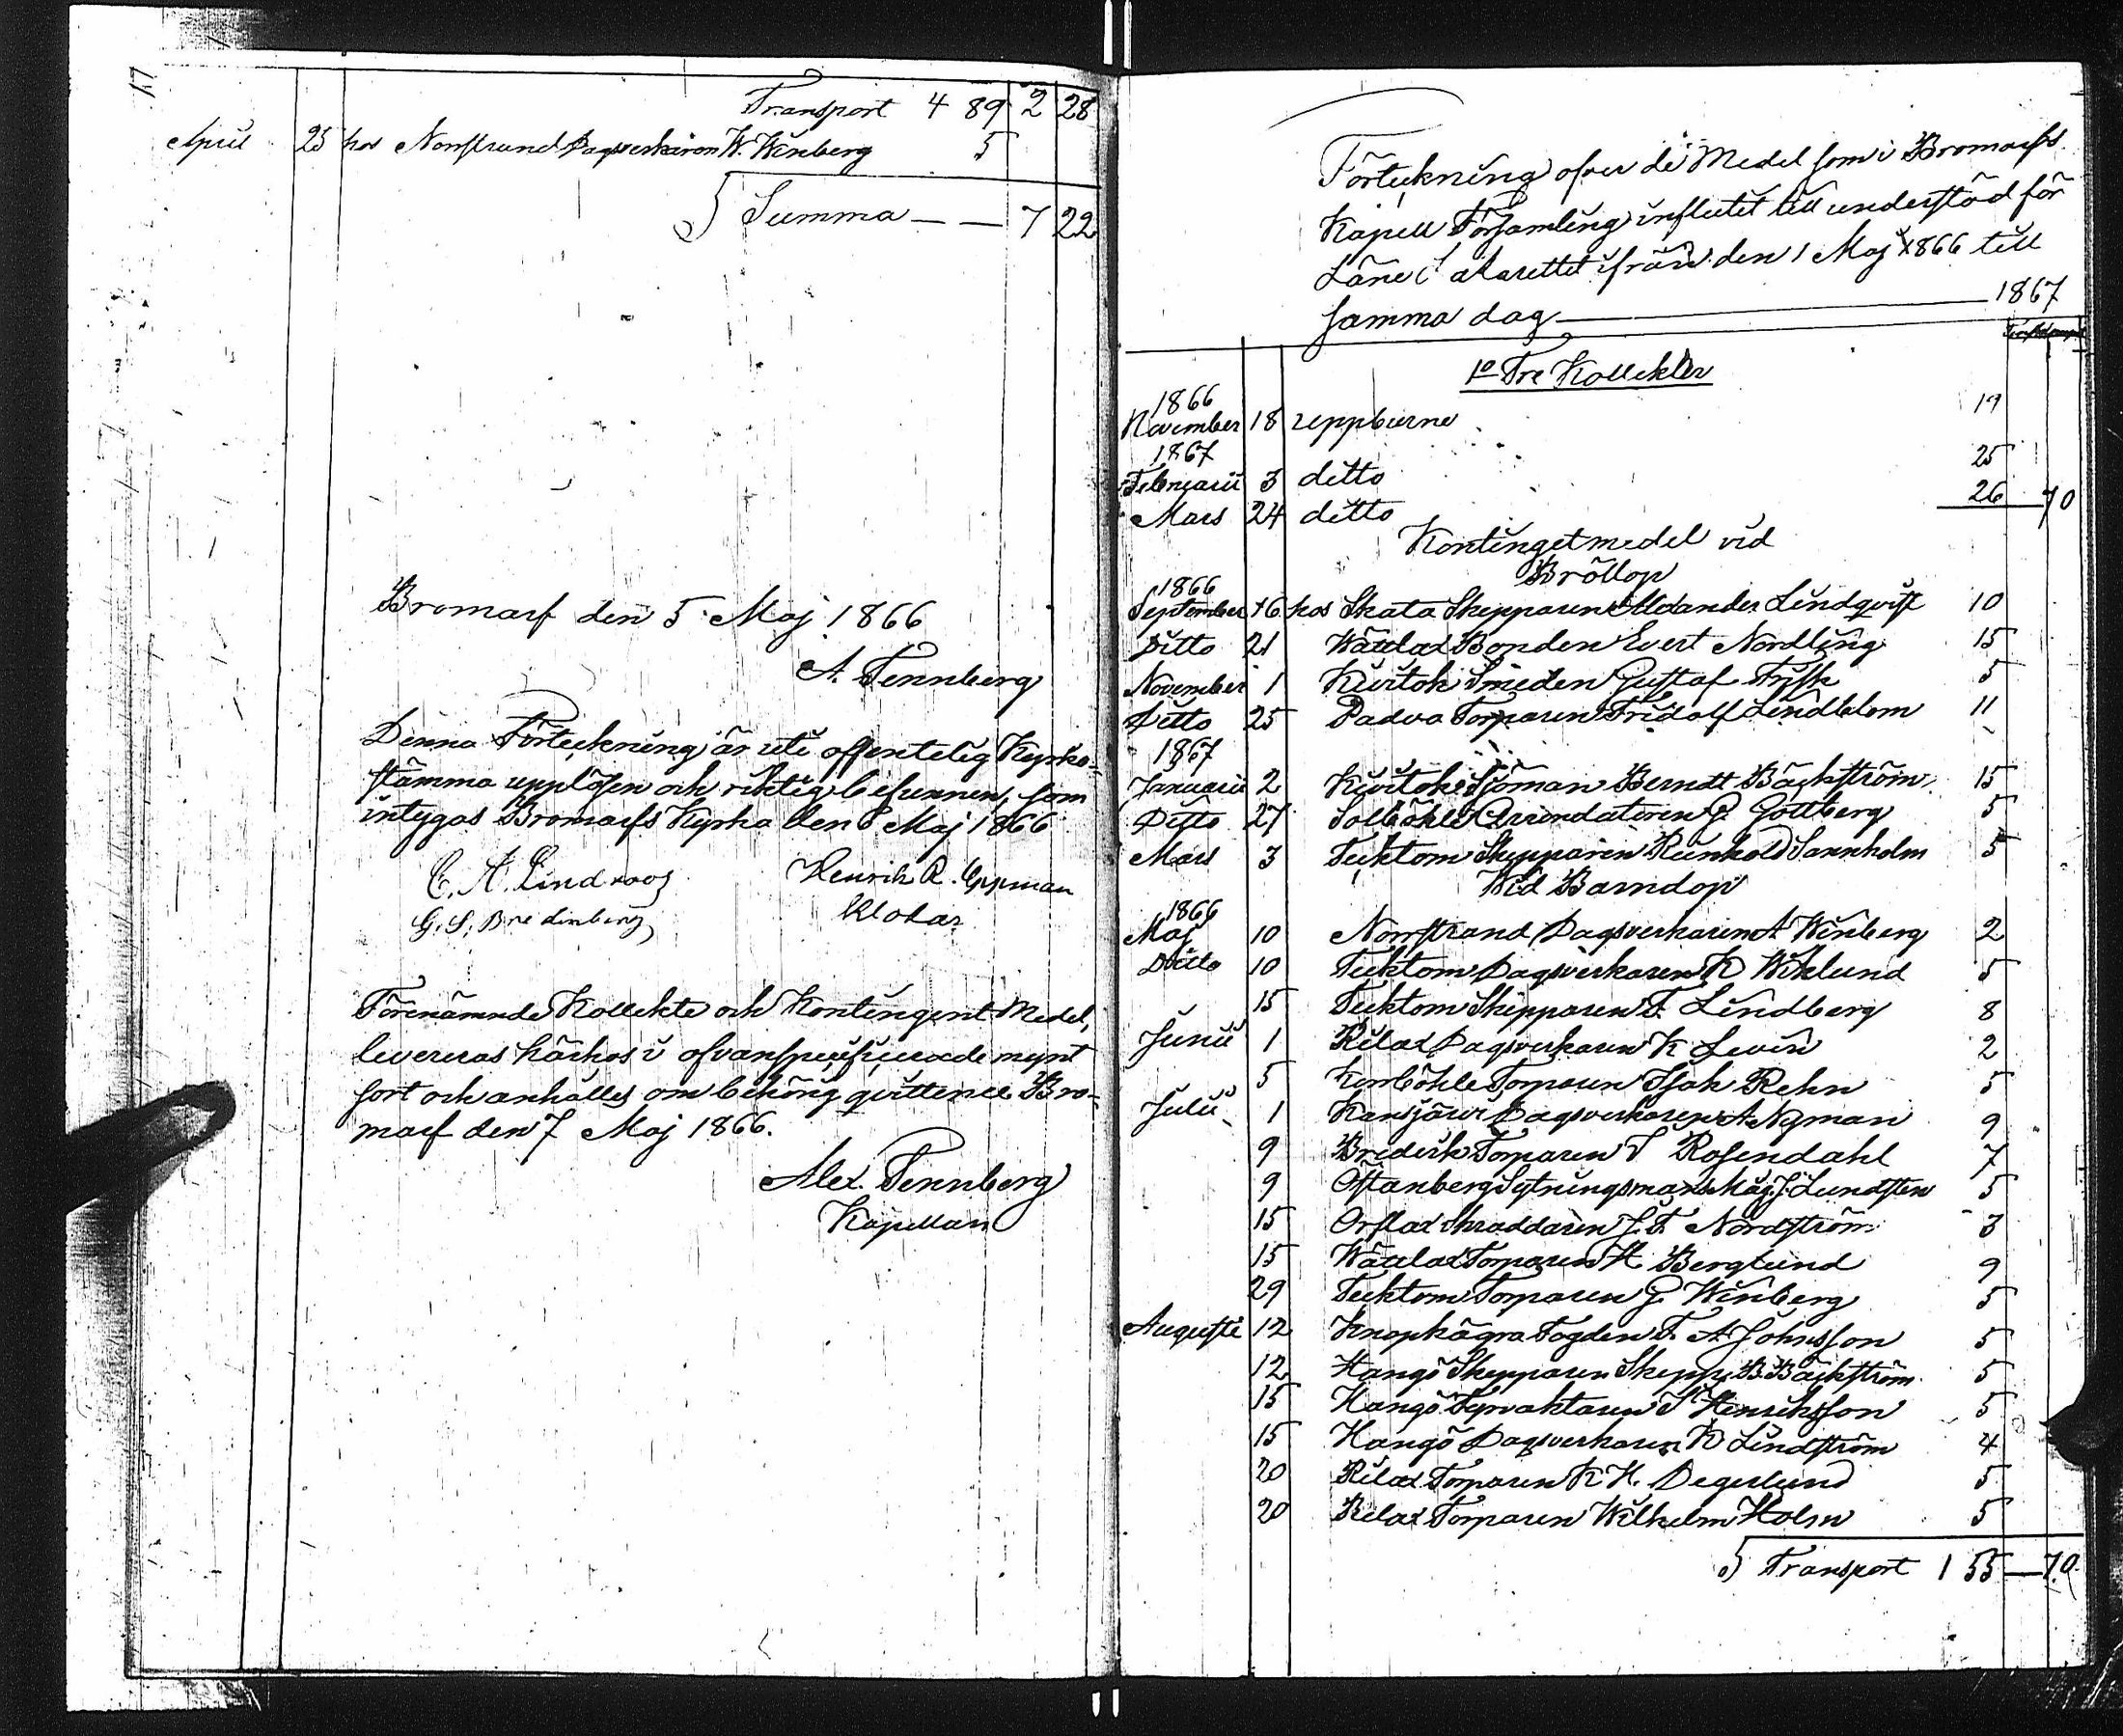 17
Transport 4 89 2 28
April 25 hos Norrstrand Dagsverkaren W. Winberg 5
Summa — — 7 22
Bromarf den 5 Maj 1866
A. Tennberg
Denna Förteckning är uti offentelig Kyrko-
stämma uppläsen och riktig befunnen, som
intygas Bromarfs Kyrka den 6 Maj 1866
C. A. Lindroos Henrik R. Eppman
G. S. Bredenberg Klokar
Förenämnde Kollekte och Kontingent Medel,
levereras härhos i ofvanspecificerade mynt
sort och anhålles om behörig qvittence Bro-
marf den 7 Maj 1866.
Alex. Tennberg
Kapellan
Förteckning ofver de Medel som i Bromarfs
Kapell Församling influtit till understöd för
Läne Lasarettet ifrån den 1 Maj 1866 till
samma dag — 1867
1o Tre Kollekter
1866
November 18 uppburne 19
1867
Februarii 3 ditto 25
Mars 24 ditto 26 — 70
Kontingetmedel vid
Bröllop
1866
September 16 hos Skata Skepparen Aldander Lindqvist 10
Ditto 21 Wättlax Bonden Evert Nordling 15
November 1 Kivitok Smeden Gustaf Frisk 5
Ditto 25 Padva Torparen Fridolf Lindblom 11
1867
Januarii 2 Kivitok Sjöman Berndt Bäckström 15
Ditto 27 Solböhle Arrendatoren G. Gottberg 5
Mars 3 Tecktom Skepparen Reinhold Sannholm 5
Wid Barndop
1866
Maj 10 Norrstrand Dagsverkaren A Winberg 2
Ditto 10 Tecktom Dagsverkaren K Wiklund 5
15 Tecktom Skepparen F. Lindberg 8
Junii 1 Rilax Dagsverkaren K Levin 2
5 Kerrböhle Torparen Isak Rehn 5
Julii 1 Kansjärvi Dagsverkaren A Nyman 9
9 Brederik Torparen J Rosendahl 7
9 Östanberg Sytningsmans Måg J. Lundsten 5
15 Orslax Skraddaren J. F. Nordström 3
15 Wättlax Torparen H Berglund 9
29 Tecktom Torparen G. Winberg 5
Augusti 12 Knopkägra Fogden F. A Johnsson 5
12 Hangö Skepparen Skepp. B. Bäckström 5
15 Hangö Fyrvaktaren J Henriksson 5
15 Hangö Dagsverkaren K Lindström 4
20 Rilax Torparen K H. Degerlund 5
20 Rilax Torparen Wilhelm Holm 5
Transport 1 55 — 70